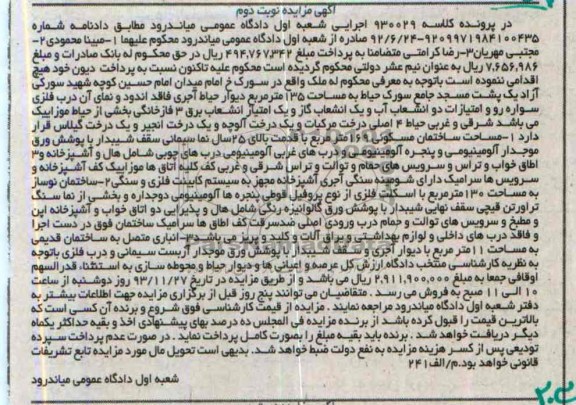 آگهی مزایده نوبت دوم
در پرونده کلاسه ۹۳۰۰۲۹ اجرایی شعبه اول دادگاه عمومی میاندرود مطابق دادنامه شماره
۹۲/۶/۲۴-۹۲۰۹۹۷۱۹۸۴۱۰۰۴۳۵ صادره از شعبه اول دادگاه عمومی میاندرود محکوم علیهما ۱-مبینا محمودی۲-
مجتبی مهربان۳-رضا کرامتی متضامنا به پرداخت مبلغ ۴۹۴,۷۶۷,۳۴۲ ریال در حق محکوم له بانک صادرات و مبلغ
۷,۶۵۶,۹۸۶ ریال به عنوان نیم عشر دولتی محکوم گردیده است محکوم علیه تاکنون نسبت به پرداخت دیون خود هیچ
اقدامی ننموده است باتوجه به معرفی محکوم له ملک واقع در سورک خ امام میدان امام حسین کوچه شهید سورکی
آزاد بک پشت مسجد جامع سورک حیاط به مساحت ۱۳۵ مترمربع دیوار حیاط آجری فاقد اندود و نمای آن درب فلزی
سواره رو و امتیازات دو انشعاب آب و یک انشعاب گاز و یک امتیاز انشعاب برق ۳ فازخانگی بخشی از حیاط موزاییک
می باشد شرقی و غربی حیاط ۴ اصلی درخت مرکبات و یک درخت آلوچه و یک درخت انجیر و یک درخت گیلاس قرار
دارد ۱-مساحت ساختمان مسکونی ۱۶۹ متر مربع با قدمت بالای ۲۵سال نما سیمانی سقف شیبدار با پوشش ورق
موجدار آلومینیومی و پنجره آلومینیومی و درب های غربی آلومینیومی درب های چوبی شامل هال و آشپزخانه و۳
اطاق خواب و تراس و سرویس های حمام و توالت و تراس شرقی و غربی کف کلیه اتاق ها موزاییک کف آشپزخانه و
سرویس ها سرامیک دارای شومینه سنگی آجری آشپزخانه مجهز به سیستم کابینت فلزی و سنگی۲-ساختمان نوساز
به مساحت ۱۳۰ مترمربع با اسکلت فلزی از نوع پروفیل قوطی پنجره ها آلومینیومی دوجداره و بخشی از نما سنگ
تراورتن قیچی سقف نهایی شیبدار با پوشش ورق گالوانیزه رنگی شامل هال و پذیرایی دو اتاق خواب و آشپزخانه اپن
و مطبخ و سرویس های توالت و حمام درب ورودی اصلی ضدسرقت کف اطاق ها سرامیک ساختمان فوق در دست اجرا
و فاقد درب های داخلی و لوازم بهداشتی و یراق آلات و کلید و پریز می باشد۳-انباری متصل به ساختمان قدیمی
به مساحت ۱۱متر مربع با دیوار آجری و سقف شیبدار با پوشش ورق موجدار آزبست سیمانی و درب فلزی باتوجه
به نظریه کارشناسی منتخب دادگاه ارزش کل عرصه و اعیانی ها و دیوار حیاط و محوطه سازی به استثناء قدرالسهم
اوقافی جمعا به مبلغ ۲,۹۱۱,۹۰۰,۰۰۰ ریال می باشد و از طریق مزایده در تاریخ ۹۳/۱۱/۲۷ روز دوشنبه از ساعت
۱۰ الی ۱۱ صبح به فروش می رسد . متقاضیان می توانند پنج روز قبل از برگزاری مزایده جهت اطلاعات بیشتر به
دفتر شعبه اول دادگاه میاندرود مراجعه نمایند . مزایده از قیمت کارشناسی فوق شروع و برنده آن کسی است که
بالاترین قیمت را قبول کرده باشد از برنده مزایده فی المجلس ده درصد بهای پیشنهادی اخذ و بقیه حداکثر یکماه
دیگر دریافت خواهد شد . برنده باید بقیه مبلغ را بصورت کامل پرداخت نماید . در صورت عدم پرداخت سپرده
تودیعی پس از کسر هزینه مزایده به نفع دولت ضبط خواهد شد. بدیهی است تحویل مال مورد مزایده تابع تشریفات
قانونی خواهد بود.م/الف۲۴۱
شعبه اول دادگاه عمومی میاندرود